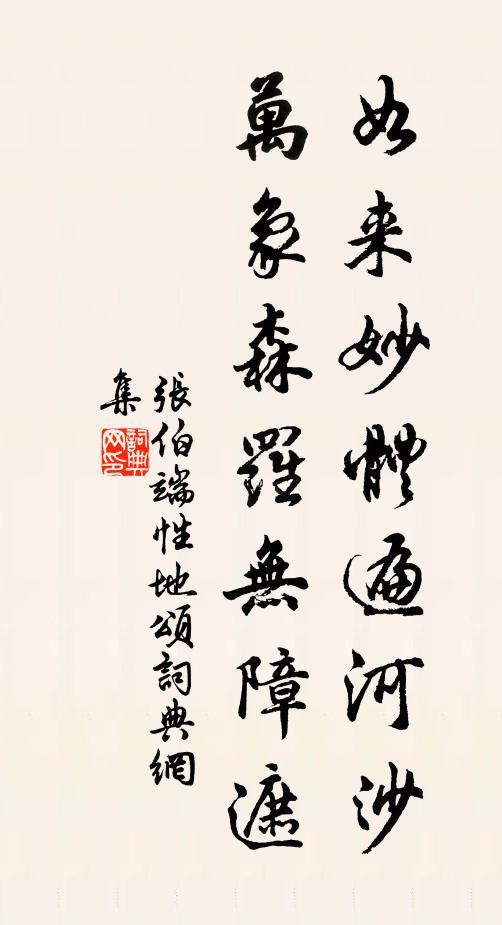 如来妙體遍河沙
萬象森羅無障遮
張伯端性地頌詞典網
集
詞典网印